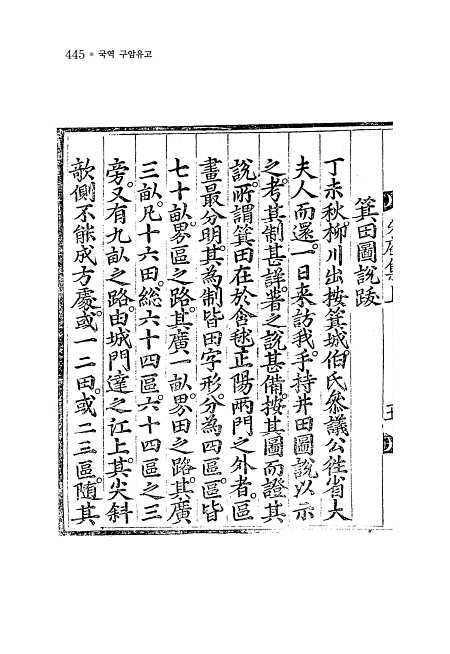 445 • 국역 구암유고
箕田圖說跋
丁未秋柳川出按箕城伯氏叅議公徃省大
夫人而還一日來訪我手持井田圖說以示
之考其制甚詳著之說甚備按其圖而證其
說所謂箕田在於含毬正陽兩門之外者區
畫最分明其為制皆田字形分為四區區皆
七十畒界區之路其廣一畒界田之路其廣
三畒凡十六田総六十四區六十四區之三
旁又有九畒之路由城門達之江上其尖斜
欹側不能成方處或一二田或二三區隨其